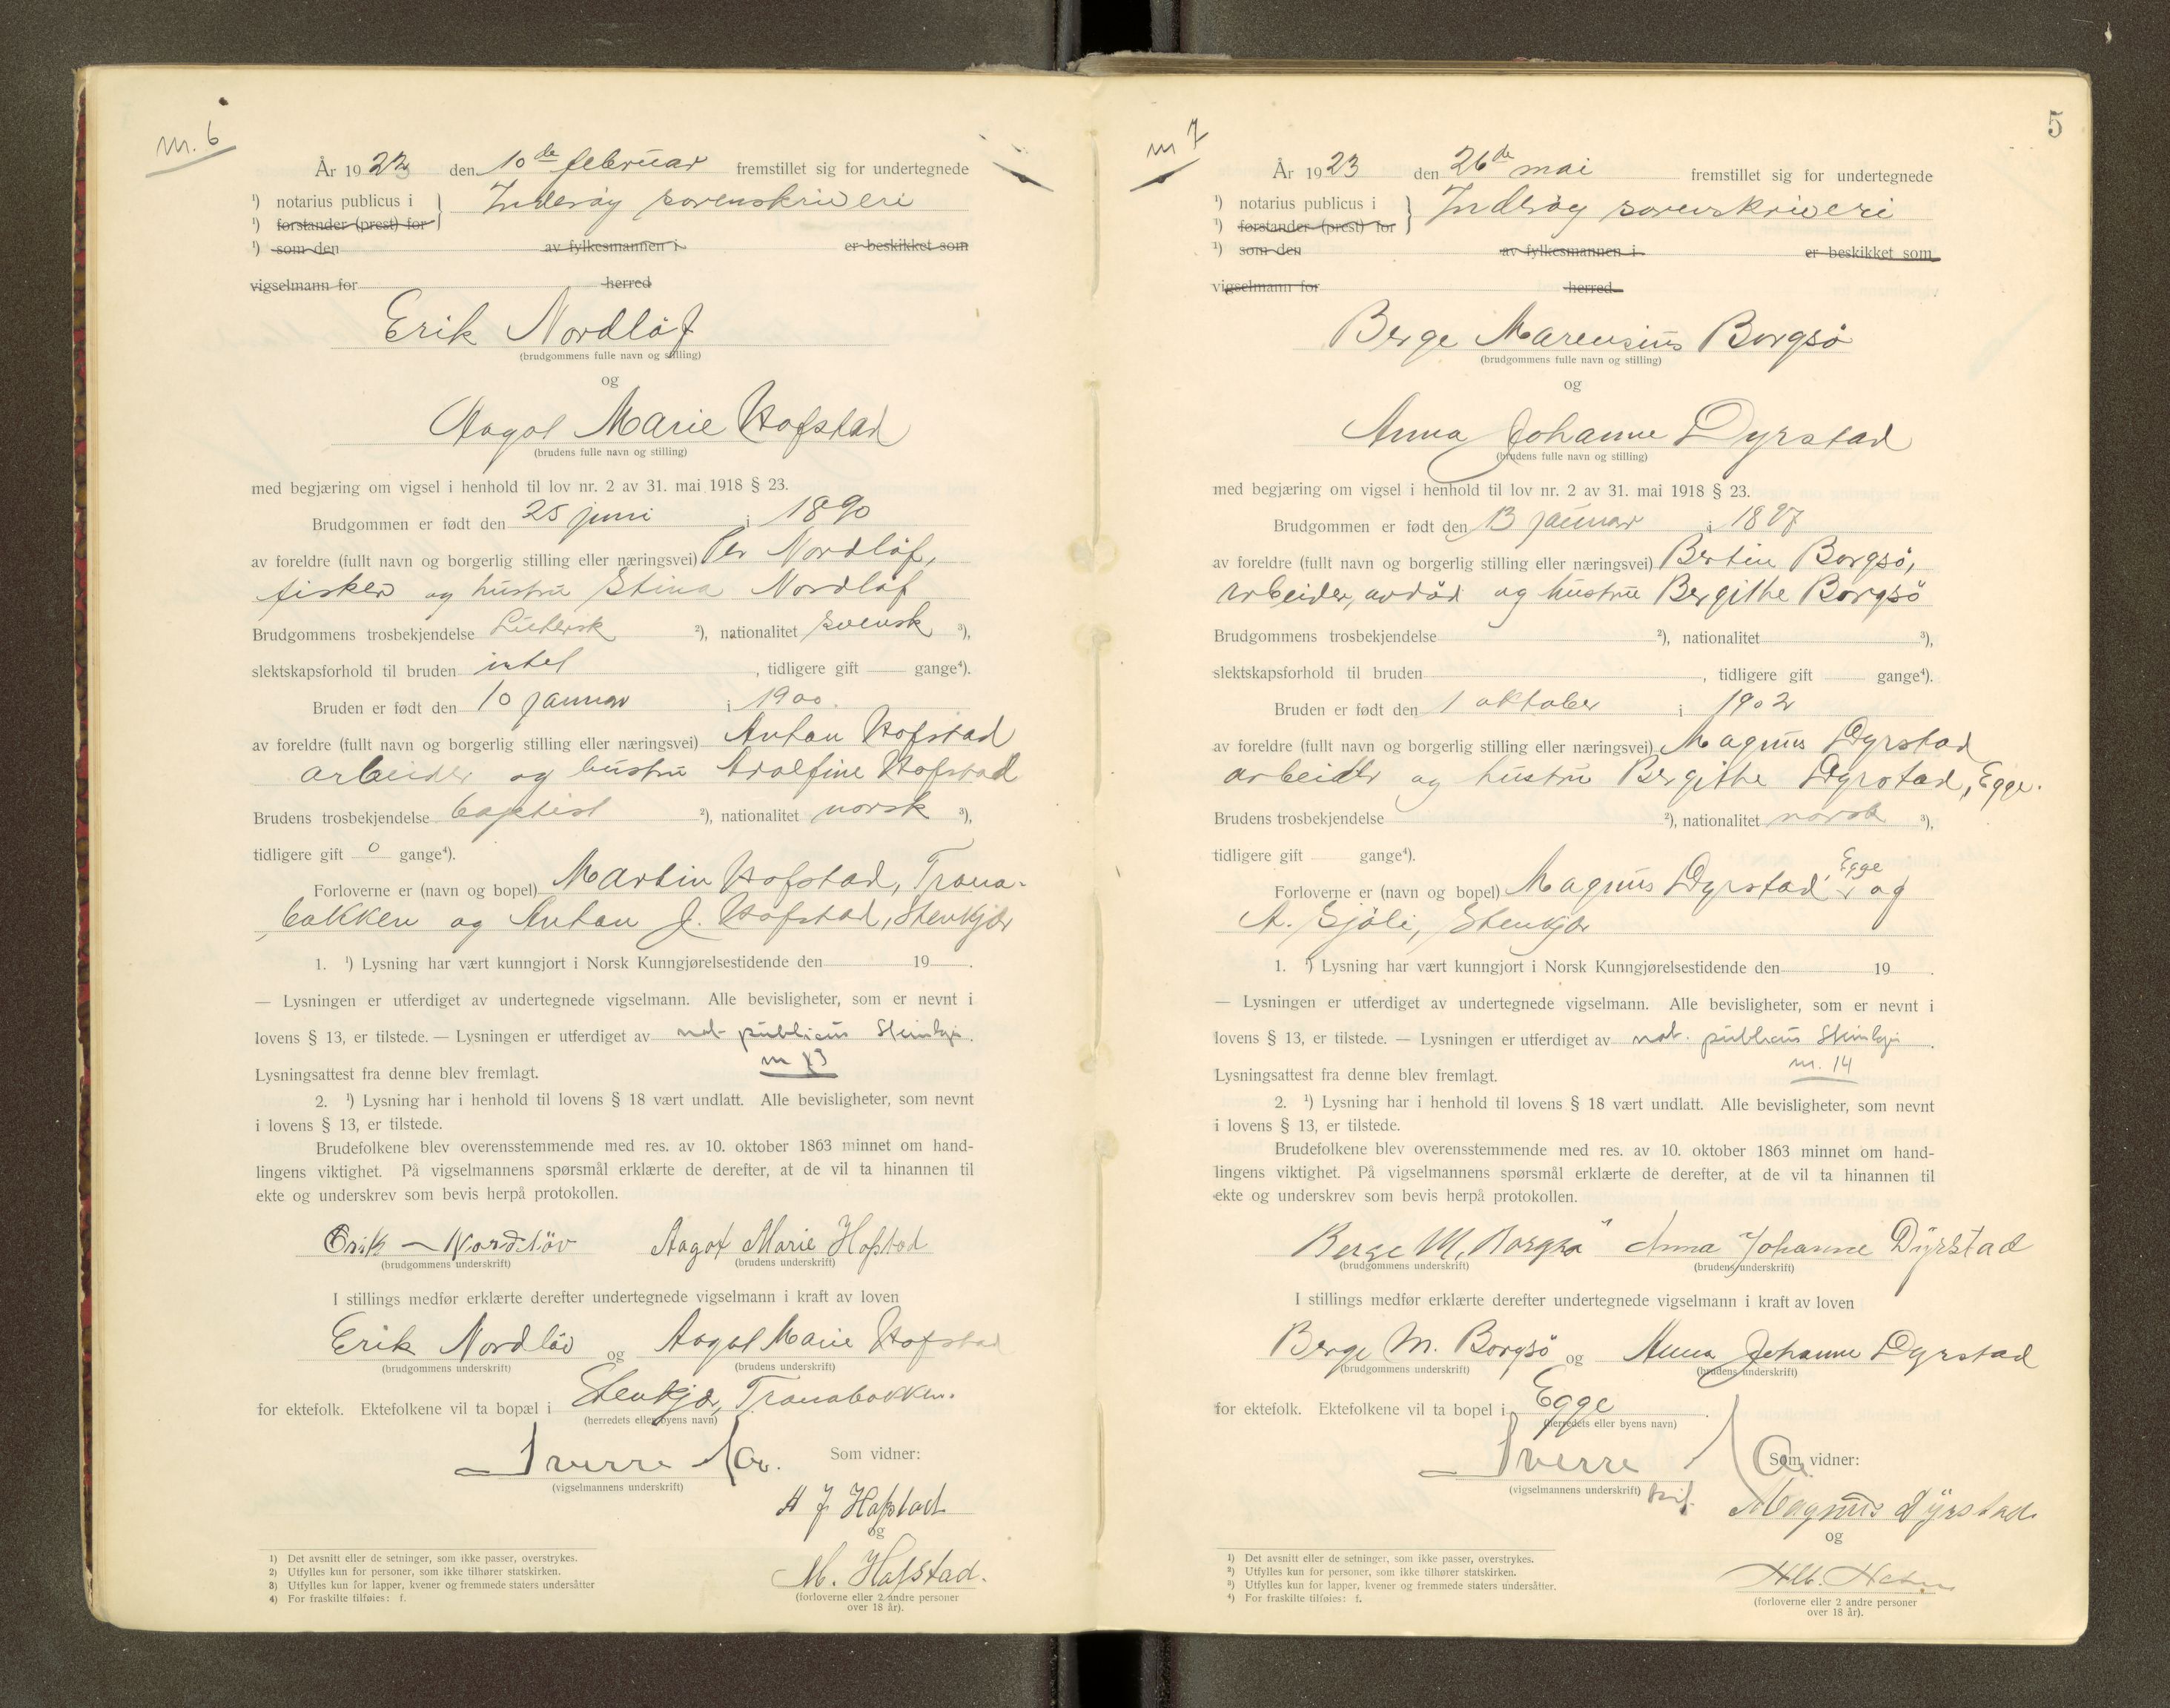 m. 6
År 1923 den 10de februar fremstillet sig for undertegnede
¹) notarius publicus i } Inderøy sorenskriveri
¹) forstander (prest) for
¹) som den av fylkesmannen i er beskikket som
vigselmann for herred
Erik Nordløf
(brudgommens fulle navn og stilling)
og
Aagot Marie Hofstad
(brudens fulle navn og stilling)
med begjæring om vigsel i henhold til lov nr. 2 av 31. mai 1918 § 23.
Brudgommen er født den 25 juni i 1890
av foreldre (fullt navn og borgerlig stilling eller næringsvei) Per Nordløf,
fisker og hustru Stina Nordløf
Brudgommens trosbekjendelse Luthersk ²), nationalitet svensk ³),
slektskapsforhold til bruden intet , tidligere gift gange⁴).
Bruden er født den 10 januar i 1900.
av foreldre (fullt navn og borgerlig stilling eller næringsvei) Anton Hofstad
arbeider og hustru Adolfine Hofstad
Brudens trosbekjendelse baptist ²), nationalitet norsk ³),
tidligere gift 0 gange⁴).
Forloverne er (navn og bopel) Martin Hofstad, Trana-
bakken og Anton J. Hofstad, Stenkjær
1. ¹) Lysning har vært kunngjort i Norsk Kunngjørelsestidende den 19 .
— Lysningen er utferdiget av undertegnede vigselmann. Alle bevisligheter, som er nevnt i
lovens § 13, er tilstede. — Lysningen er utferdiget av not. publicus Steinkjer.
m 13
Lysningsattest fra denne blev fremlagt.
2. ¹) Lysning har i henhold til lovens § 18 vært undlatt. Alle bevisligheter, som nevnt
i lovens § 13, er tilstede.
Brudefolkene blev overensstemmende med res. av 10. oktober 1863 minnet om hand-
lingens viktighet. På vigselmannens spørsmål erklærte de derefter, at de vil ta hinannen til
ekte og underskrev som bevis herpå protokollen.
Erik Nordlöv Aagot Marie Hofstad
(brudgommens underskrift) (brudens underskrift)
I stillings medfør erklærte derefter undertegnede vigselmann i kraft av loven
Erik Nordløv og Aagot Marie Hofstad
(brudgommens underskrift) (brudens underskrift)
for ektefolk. Ektefolkene vil ta bopæl i Stenkjær, Tranabakken.
(herredets eller byens navn)
Sverre
(vigselmannens underskrift)
Som vidner:
A J Hofstad
og
M. Hofstad.
(forloverne eller 2 andre personer
over 18 år).
1) Det avsnitt eller de setninger, som ikke passer, overstrykes.
2) Utfylles kun for personer, som ikke tilhører statskirken.
3) Utfylles kun for lapper, kvener og fremmede staters undersåtter
4) For fraskilte tilføies: f.
5
m 7
År 1923 den 26de mai fremstillet sig for undertegnede
¹) notarius publicus i } Inderøy sorenskriveri
¹) forstander (prest) for
¹) som den av fylkesmannen i er beskikket som
vigselmann for herred
Berge Marensius Borgsø
(brudgommens fulle navn og stilling)
og
Anna Johanne Dyrstad
(brudens fulle navn og stilling)
med begjæring om vigsel i henhold til lov nr. 2 av 31. mai 1918 § 23.
Brudgommen er født den 13 januar i 1897
av foreldre (fullt navn og borgerlig stilling eller næringsvei) Bertin Borgsø,
arbeider, avdød og hustru Bergithe Borgsø
Brudgommens trosbekjendelse ²), nationalitet ³),
slektskapsforhold til bruden , tidligere gift gange⁴).
Bruden er født den 1 oktober i 1902
av foreldre (fullt navn og borgerlig stilling eller næringsvei) Magnus Dyrstad
arbeider og hustru Bergithe Dyrstad, Egge.
Brudens trosbekjendelse ²), nationalitet norsk ³),
tidligere gift gange⁴).
Forloverne er (navn og bopel) Magnus Dyrstad, Egge og
A. Sjøli, Stenkjær
1. ¹) Lysning har vært kunngjort i Norsk Kunngjørelsestidende den 19 .
— Lysningen er utferdiget av undertegnede vigselmann. Alle bevisligheter, som er nevnt i
lovens § 13, er tilstede. — Lysningen er utferdiget av not. publicus Steinkjer .
m. 14
Lysningsattest fra denne blev fremlagt.
2. ¹) Lysning har i henhold til lovens § 18 vært undlatt. Alle bevisligheter, som nevnt
i lovens § 13, er tilstede.
Brudefolkene blev overensstemmende med res. av 10. oktober 1863 minnet om hand-
lingens viktighet. På vigselmannens spørsmål erklærte de derefter, at de vil ta hinannen til
ekte og underskrev som bevis herpå protokollen.
Berge M. Borgsø Anna Johanne Dyrstad
(brudgommens underskrift) (brudens underskrift)
I stillings medfør erklærte derefter undertegnede vigselmann i kraft av loven
Berge M. Borgsø og Anna Johanne Dyrstad
(brudgommens underskrift) (brudens underskrift)
for ektefolk. Ektefolkene vil ta bopel i Egge .
(herredets eller byens navn)
Sverre
(vigselmannens underskrift)
Som vidner:
Magnus Dyrstad
og
(forloverne eller 2 andre personer
over 18 år).
1) Det avsnitt eller de setninger, som ikke passer, overstrykes.
2) Utfylles kun for personer, som ikke tilhører statskirken.
3) Utfylles kun for lapper, kvener og fremmede staters undersåtter.
4) For fraskilte tilføies: f.